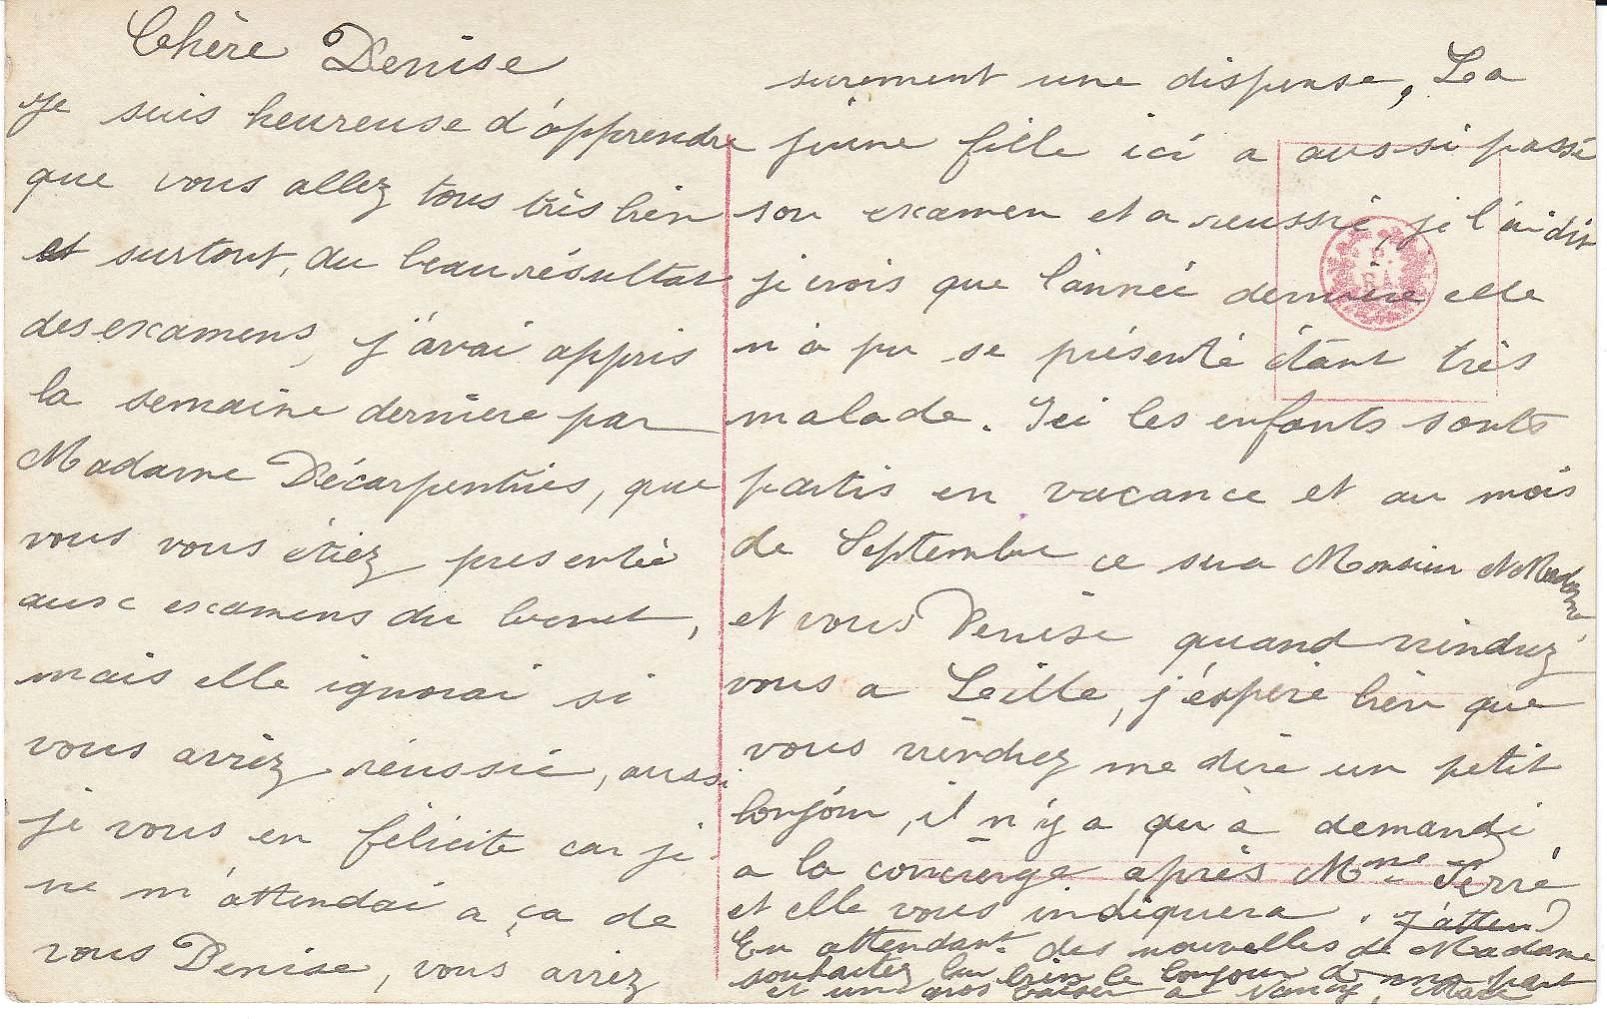 Chère Denise
Je suis heureuse d'apprendre
que vous allez tous très bien
et surtout, du beau résultat
des examens, j'avai appris
la semaine dernière par
Madame Décarpentries, que
vous vous étiez presentée
aux examens du brevet,
mais elle ignorai si
vous aviez réussie, aussi
je vous en félicite car je
ne m'attendai a ça de
vous Denise, vous aviez
surement une dispense, La
jeune fille ici a aussi passé
son examen et a reussie, je l'ai dit
je crois que l'année derniere elle
n'a pu se présenté étant très
malade. Ici les enfants sonts
partis en vacance et au mois
de Septembre ce sera Monsieur et Madame
et vous Denise quand viendrez
vous a Lille, j'éspère bien que
vous viendrez me dire un petit
bonjour, il n'y a qu'à demandé
a la concierge après Mme
et elle vous indiquera. J'atten
En attendant des nouvelles de Madame
souhaitez lui bien le bonjour de ma part
et un gros baiser a
P.
RA